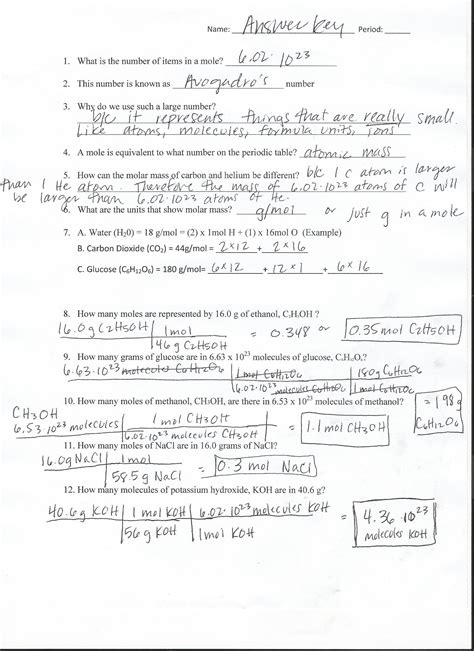 Name: Answer key Period:
1. What is the number of items in a mole? 6.02 · 10²³
2. This number is known as Avogadro's number
3. Why do we use such a large number?
b/c it represents things that are really small.
Like atoms, molecules, formula units, ions
4. A mole is equivalent to what number on the periodic table? atomic mass
5. How can the molar mass of carbon and helium be different? b/c 1 C atom is larger
than 1 He atom. Therefore the mass of 6.02·10²³ atoms of C will
be larger than 6.02·10²³ atoms of He.
6. What are the units that show molar mass? g/mol or just g in a mole
7. A. Water (H₂0) = 18 g/mol = (2) x 1mol H + (1) x 16mol O (Example)
B. Carbon Dioxide (CO₂) = 44g/mol = 2×12 + 2×16
C. Glucose (C₆H₁₂O₆) = 180 g/mol= 6×12 + 12×1 + 6×16
8. How many moles are represented by 16.0 g of ethanol, C₂H₅OH ?
16.0g C2H5OH | 1mol = 0.348 or 0.35mol C2H5OH
46g C2H5OH
9. How many grams of glucose are in 6.63 x 10²³ molecules of glucose, C₆H₁₂O₆?
6.63·10²³ molecules C6H12O6 | 1mol C6H12O6 | 180g C6H12O6
6.02·10²³ molecules C6H12O6 | 1mol C6H12O6
= 198g C6H12O6
10. How many moles of methanol, CH₃OH, are there in 6.53 x 10²³ molecules of methanol?
CH3OH
6.53·10²³ molecules | 1 mol CH3OH = 1.1 mol CH3OH
6.02·10²³ molecules CH3OH
11. How many moles of NaCl are in 16.0 grams of NaCl?
16.0g NaCl | 1mol = 0.3 mol NaCl
58.5g NaCl
12. How many molecules of potassium hydroxide, KOH are in 40.6 g?
40.6g KOH | 1 mol KOH | 6.02·10²³ molecules KOH = 4.36 · 10²³ molecules KOH
56g KOH | 1mol KOH